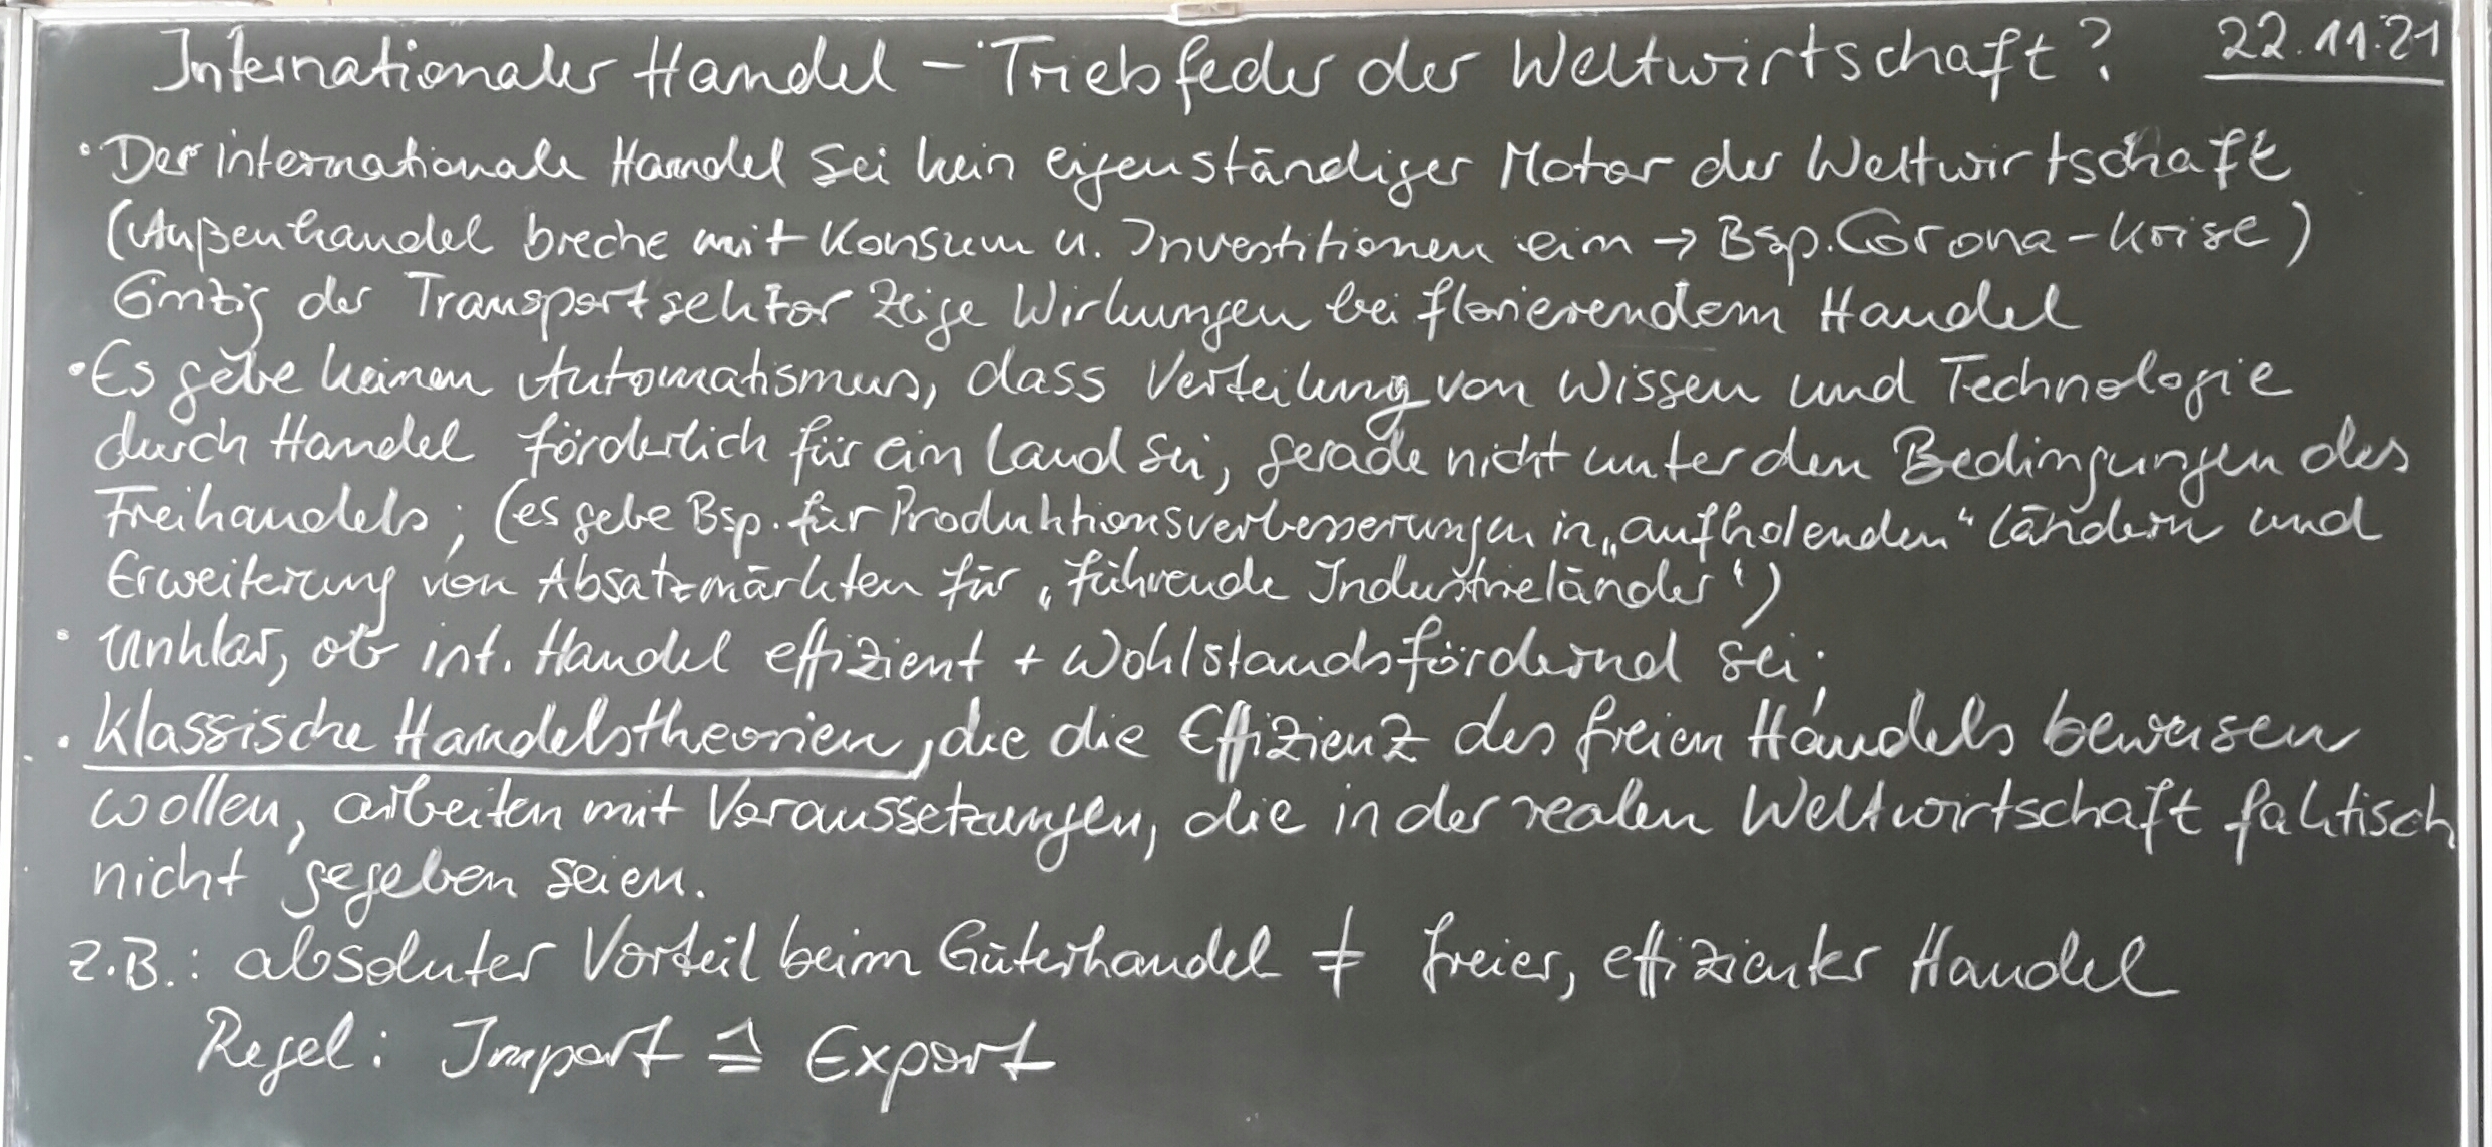 Internationaler Handel – Triebfeder der Weltwirtschaft? 22.11.21
• Der internationale Handel sei kein eigenständiger Motor der Weltwirtschaft
(Außenhandel breche mit Konsum u. Investitionen ein → Bsp. Corona-Krise)
Einzig der Transportsektor zeige Wirkungen bei florierendem Handel
• Es gebe keinen Automatismus, dass Verteilung von Wissen und Technologie
durch Handel förderlich für ein Land sei, gerade nicht unter den Bedingungen des
Freihandels; (es gebe Bsp. für Produktionsverbesserungen in „aufholenden“ Ländern und
Erweiterung von Absatzmärkten für „führende Industrieländer“)
• Unklar, ob int. Handel effizient + wohlstandsfördernd sei;
• Klassische Handelstheorien, die die Effizienz des freien Handels beweisen
wollen, arbeiten mit Voraussetzungen, die in der realen Weltwirtschaft faktisch
nicht gegeben seien.
z.B.: absoluter Vorteil beim Güterhandel ≠ freier, effizienter Handel
Regel: Import ≙ Export